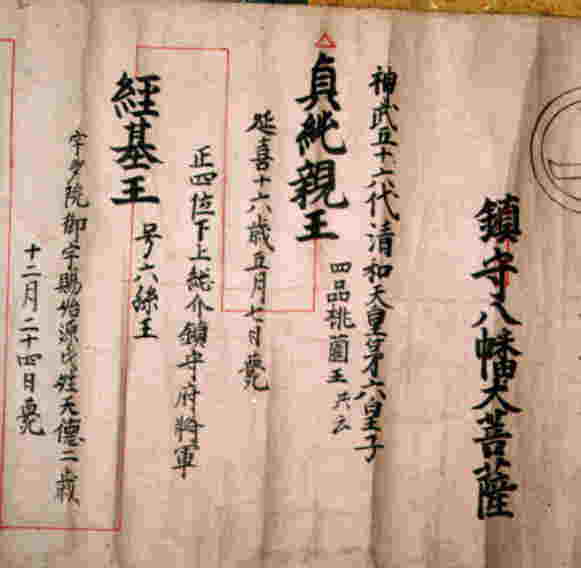 鎮守八幡大菩薩
神武五十六代清和天皇第六皇子
貞純親王
四品桃園王共云
延喜十六歳五月七日薨
正四位下上総介鎮守府将軍
經基王
号六孫王
宇多院御宇賜始源氏姓天德二歳
十二月二十四日薨